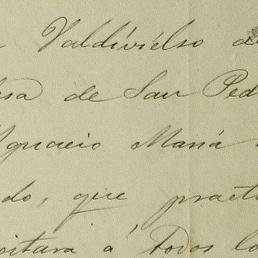 Valdivielso de
esa de San Ped
Ignacio Maná
do, que pract
citara á Todos lo